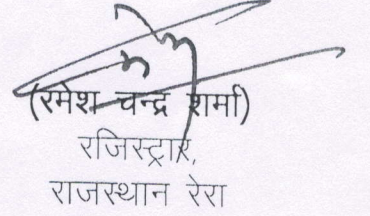 (रमेश चन्द्र शर्मा)
रजिस्ट्रार,
राजस्थान रेरा